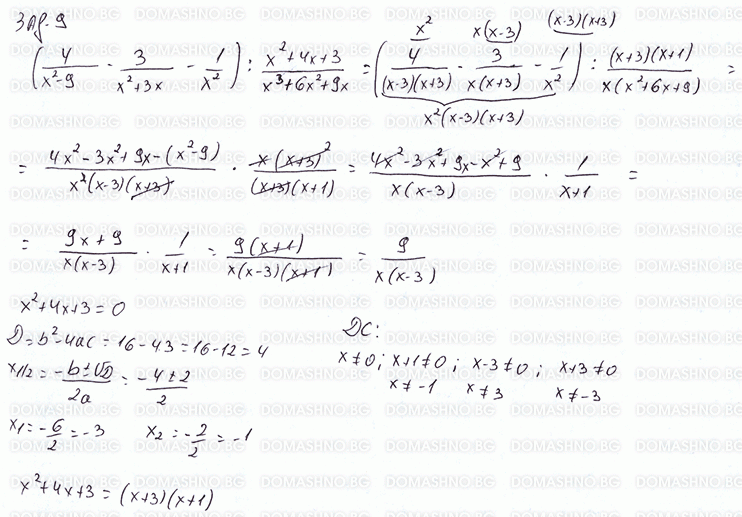 Зад. 9
x² x(x-3) (x-3)(x+3)
(4/(x²-9) - 3/(x²+3x) - 1/x²) : (x²+4x+3)/(x³+6x²+9x) = (4/((x-3)(x+3)) - 3/(x(x+3)) - 1/x²) : ((x+3)(x+1))/(x(x²+6x+9)) =
x²(x-3)(x+3)
= (4x²-3x²+9x-(x²-9))/(x²(x-3)(x+3)) · (x(x+3)²)/((x+3)(x+1)) = (4x²-3x²+9x-x²+9)/(x(x-3)) · 1/(x+1) =
= (9x+9)/(x(x-3)) · 1/(x+1) = (9(x+1))/(x(x-3)(x+1)) = 9/(x(x-3))
x²+4x+3=0
D=b²-4ac=16-4.3=16-12=4
x1/2 = (-b±√D)/(2a) = (-4±2)/2
x₁=-6/2=-3 x₂=-2/2=-1
x²+4x+3=(x+3)(x+1)
ДС:
x≠0; x+1≠0; x-3≠0; x+3≠0
x≠-1 x≠3 x≠-3
DOMASHNO.BG